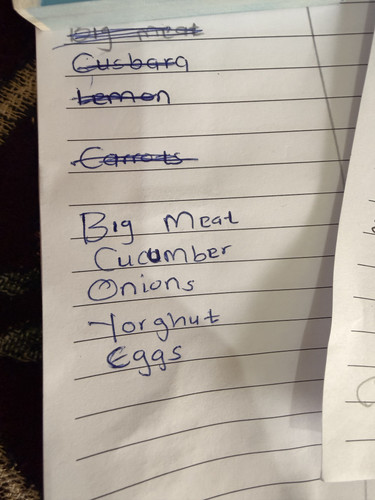 Big meat
Cusbara
Lemon
Carrots
Big Meat
Cucumber
Onions
Yorghut
Eggs